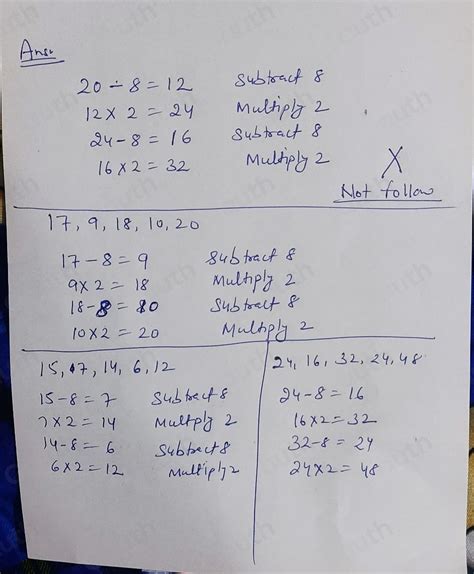 Ans:
20 ÷ 8 = 12 Subtract 8
12 × 2 = 24 Multiply 2
24 - 8 = 16 Subtract 8
16 × 2 = 32 Multiply 2
X
Not follow
17, 9, 18, 10, 20
17 - 8 = 9 Subtract 8
9 × 2 = 18 Multiply 2
18 - 8 = 10 Subtract 8
10 × 2 = 20 Multiply 2
15, 7, 14, 6, 12
15 - 8 = 7 Subtract 8
7 × 2 = 14 Multply 2
14 - 8 = 6 Subtract 8
6 × 2 = 12 Multiply 2
24, 16, 32, 24, 48
24 - 8 = 16
16 × 2 = 32
32 - 8 = 24
24 × 2 = 48